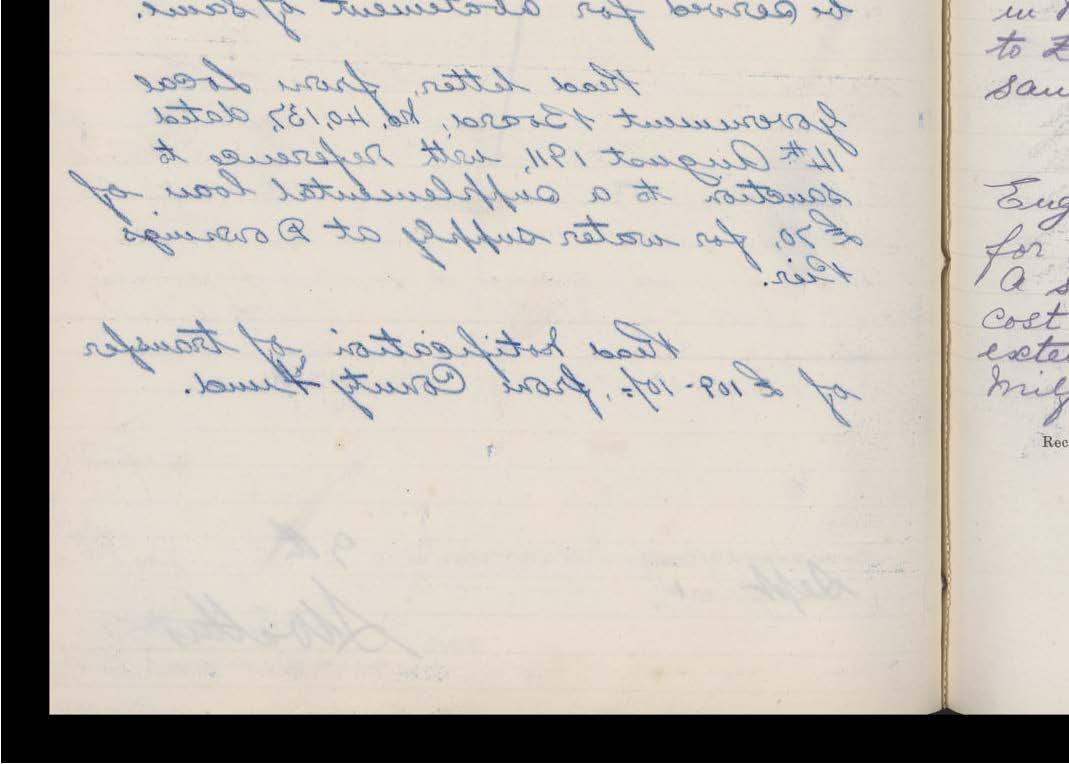 be served for abatement of same.
Read letter, from Local
Government Board, No. 40,137, dated
14th August 1911, with reference to
sanction to a supplemental loan of
£70, for water supply at Downings
Pier.
Read notification of transfer
of £109-10/-, from County Fund.
9th
Sept
in
to
Eng
for
A s
cost
exte
Milf
Rec